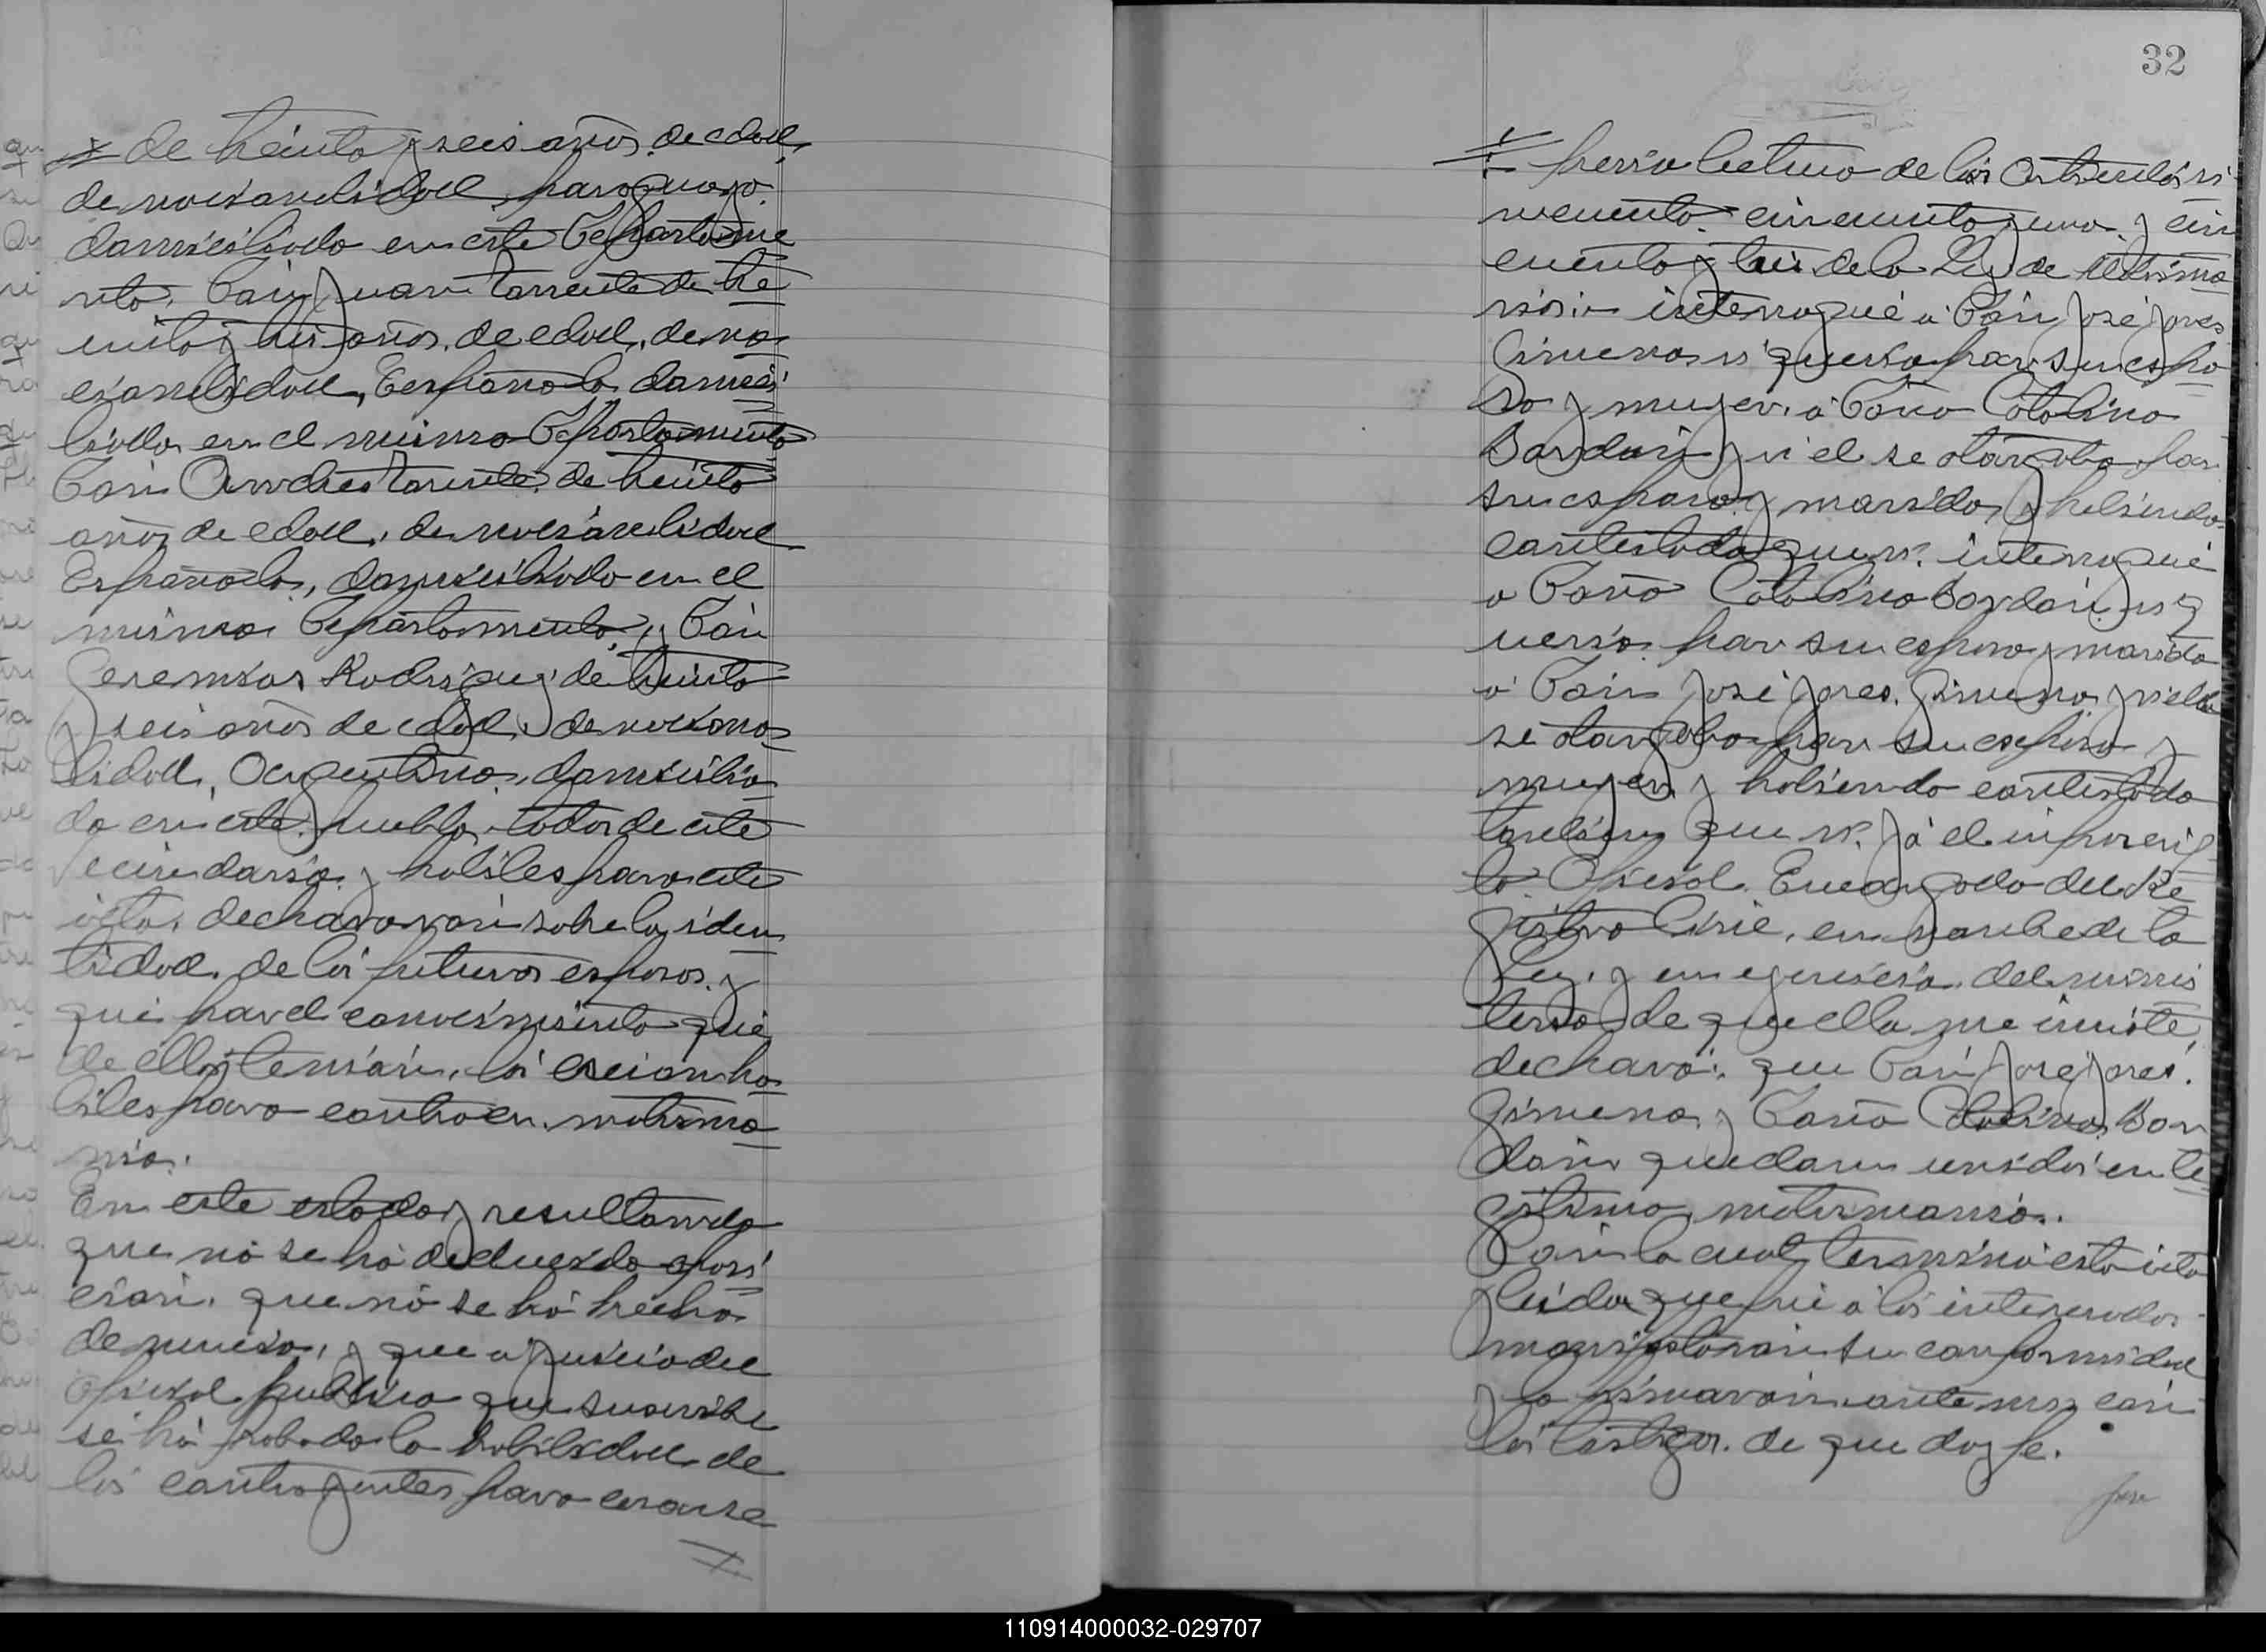 de treinta y seis años de edad,
de nacionalidad paraguayo
domiciliado en este Departame
nto, Don Juan Torrente de tre
inta y tres años de edad, de na
cionalidad, Española domici
liado en el mismo Departamento
Don Andres Torrente de treinta
años de edad, de nacionalidad
Española, domiciliado en el
mismo Departamento, y Don
Geremias Rodriguez de treinta
y seis años de edad, de naciona
lidad, Argentino, domicilia
do en este pueblo, todos de este
Vecindario y habiles para este
acto, declararon sobre la iden
tidad de los futuros esposos y
que por el conocimiento que
de ellos tenian, los creian ha
biles para contraer matrimo
nio.
En este estado, y resultando
que no se ha deducido oposi
cion, que no se ha hecho
denuncia, y que a juicio del
Oficial publico que suscribe
se ha probado la habilidad de
los contrayentes para casarse
32
previa lectura de los Articulos
cincuenta, cincuenta y uno y cin
cuenta y tres de la Ley de Matrimo
nio interrogué a Don José
Gimeno si queria por su espo
sa y mujer, a Doña Catalina
Bordon, y si el se otorgaba por
su esposo y marido, y habiendo
contestado que si, interrogué
a Doña Catalina Bordon, si q
ueria por su esposo y marido
a Don José Gimeno y si ella
se otorgaba por su esposa y
mujer, y habiendo contestado
tambien que si, Yo el infrascrip
to Oficial Encargado del Re
gistro Civil, en nombre de la
Ley, y en egercicio del minis
terio de que ella me inviste,
declaro: que Don José
Gimeno, y Doña Catalina Bor
don quedan unidos en le
gitimo matrimonio.
Con lo cual terminó esta acta
leida que fué a los interesados
manifestaron su conformidad
y la firmaron ante mi, con
los testigos. de que doy fe.
110914000032-029707